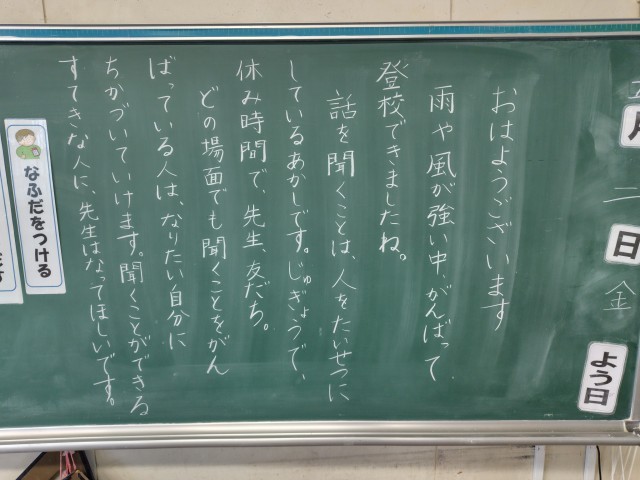 月
二
日
金
よう日
おはようございます
雨や風が強い中、がんばって
登校できましたね。
話を聞くことは、人をたいせつに
しているあかしです。じゅぎょうで、
休み時間で、先生、友だち。
どの場面でも聞くことをがん
ばっている人は、なりたい自分に
ちかづいていけます。聞くことができる
すてきな人に、先生はなってほしいです。
なふだをつける